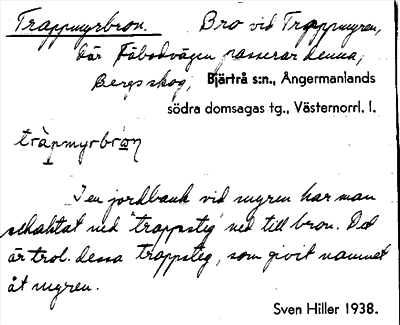 Trappmyrbron. Bro vid Trappmyren,
där Fäbodvägen passerar denna;
Bergs skog, Bjärtrå s:n., Ångermanlands
södra domsagas tg., Västernorrl. l.
tràpmyrbròn
I en jordbank vid myren har man
schaktat ned "trappsteg" ned till bron. Det
är trol. dessa trappsteg, som givit namnet
åt myren.
Sven Hiller 1938.